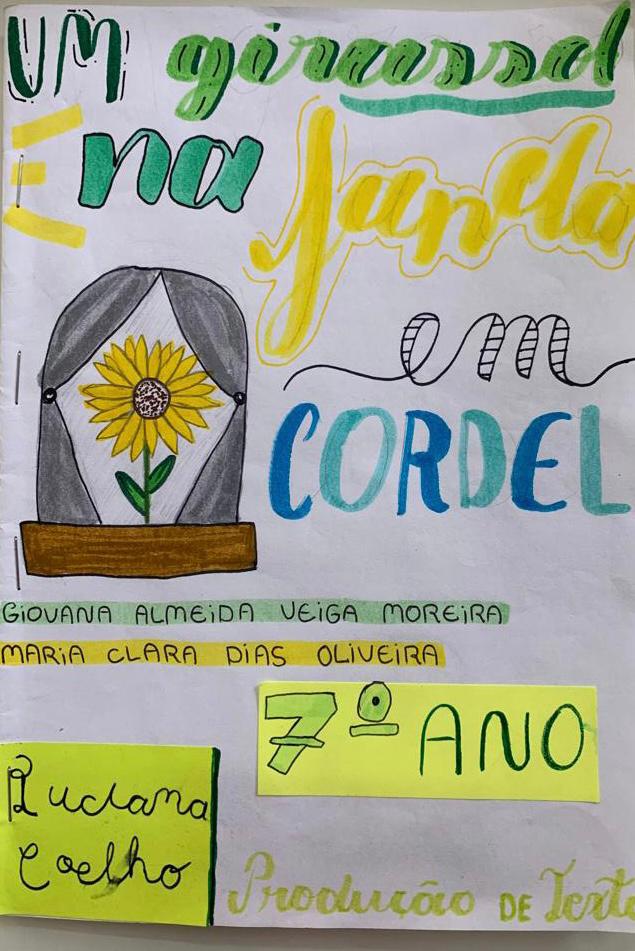 UM girassol
na janela
em
CORDEL
GIOVANA ALMEIDA VEIGA MOREIRA
MARIA CLARA DIAS OLIVEIRA
7º ANO
Luciana
Coelho
Produção DE Texto